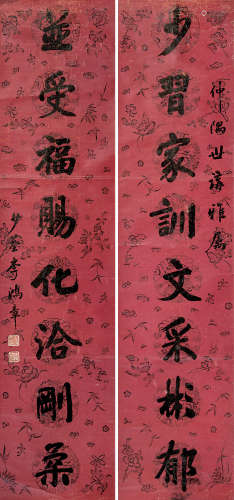 少習家訓文采彬郁
並受福賜化洽剛柔
少荃李鴻章